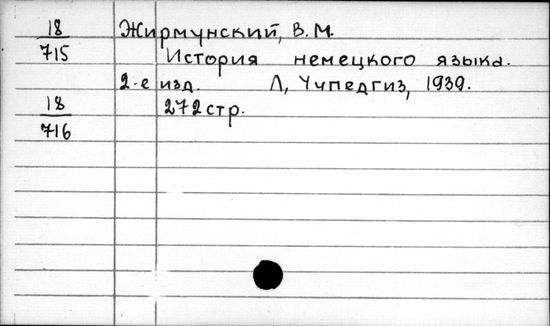 18
715
Жирмунский, В. М.
История немецкого языка.
2-е изд. Л, Учпедгиз, 1939.
18
716
272 стр.